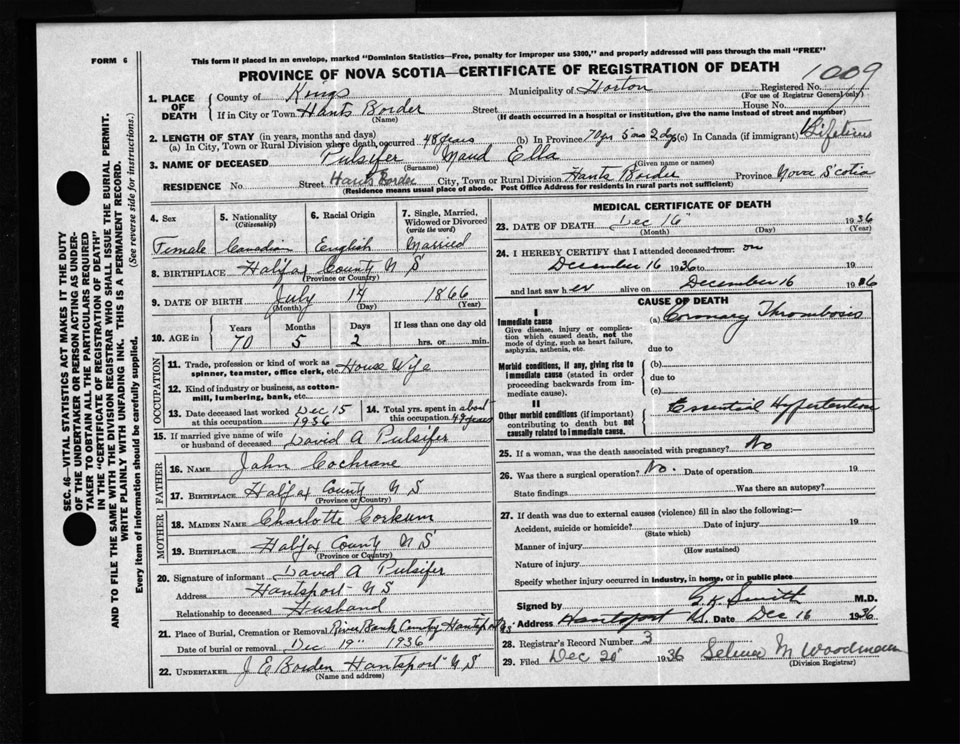 FORM 6
This form if placed in an envelope, marked "Dominion Statistics—Free, penalty for improper use $300," and properly addressed will pass through the mail "FREE"
PROVINCE OF NOVA SCOTIA—CERTIFICATE OF REGISTRATION OF DEATH
1009
SEC. 46—VITAL STATISTICS ACT MAKES IT THE DUTY
OF THE UNDERTAKER OR PERSON ACTING AS UNDER-
TAKER TO OBTAIN ALL THE PARTICULARS REQUIRED
IN THE "CERTIFICATE OF REGISTRATION OF DEATH"
AND TO FILE THE SAME WITH THE DIVISION REGISTRAR WHO SHALL ISSUE THE BURIAL PERMIT.
WRITE PLAINLY WITH UNFADING INK. THIS IS A PERMANENT RECORD.
Every item of information should be carefully supplied. (See reverse side for instructions.)
1. PLACE OF DEATH County of Kings Municipality of Horton Registered No.
(For use of Registrar General only)
If in City or Town Hants Border Street House No.
(Name) (If death occurred in a hospital or institution, give the name instead of street and number)
2. LENGTH OF STAY (in years, months and days)
(a) In City, Town or Rural Division where death occurred 48 years (b) In Province 70 yrs 5 ms 2 dys (c) In Canada (if immigrant) Lifetime
3. NAME OF DECEASED Pulsifer Maud Ella
(Surname) (Given name or names)
RESIDENCE No. Street Hants Border City, Town or Rural Division Hants Border Province Nova Scotia
(Residence means usual place of abode. Post Office Address for residents in rural parts not sufficient)
4. Sex 5. Nationality (Citizenship) 6. Racial Origin 7. Single, Married, Widowed or Divorced (write the word)
Female Canadian English Married
8. BIRTHPLACE Halifax County N S
(Province or Country)
9. DATE OF BIRTH July 14 1866
(Month) (Day) (Year)
10. AGE in Years Months Days If less than one day old
70 5 2 hrs. or min.
OCCUPATION
11. Trade, profession or kind of work as spinner, teamster, office clerk, etc. House Wife
12. Kind of industry or business, as cotton-mill, lumbering, bank, etc.
13. Date deceased last worked at this occupation Dec 15 1936 14. Total yrs. spent in this occupation about 49 years
15. If married give name of wife or husband of deceased David A Pulsifer
FATHER
16. NAME John Cochrane
17. BIRTHPLACE Halifax County N S
(Province or Country)
MOTHER
18. MAIDEN NAME Charlotte Corkum
19. BIRTHPLACE Halifax County N S
(Province or Country)
20. Signature of informant David A Pulsifer
Address Hantsport N S
Relationship to deceased Husband
21. Place of Burial, Cremation or Removal River Bank Cemty Hantsport N S
Date of burial or removal Dec 19" 1936
22. UNDERTAKER J E Borden Hantsport N S
(Name and address)
MEDICAL CERTIFICATE OF DEATH
23. DATE OF DEATH Dec 16" 1936
(Month) (Day) (Year)
24. I HEREBY CERTIFY that I attended deceased from: on
December 16 1936 to 19
and last saw her alive on December 16 1936
CAUSE OF DEATH
I
Immediate cause (a) Coronary Thrombosis
Give disease, injury or complication which caused death, not the mode of dying, such as heart failure, asphyxia, asthenia, etc.
due to
Morbid conditions, if any, giving rise to immediate cause (stated in order proceeding backwards from immediate cause).
(b)
due to
(c)
II
Other morbid conditions (if important) contributing to death but not causally related to immediate cause. Essential Hypertention
25. If a woman, was the death associated with pregnancy? No
26. Was there a surgical operation? No. Date of operation 19
State findings Was there an autopsy?
27. If death was due to external causes (violence) fill in also the following:—
Accident, suicide or homicide? Date of injury 19
(State which)
Manner of injury
(How sustained)
Nature of injury
Specify whether injury occurred in industry, in home, or in public place
Signed by G. K. Smith M.D.
Address Hantsport N.S. Date Dec 16 1936
28. Registrar's Record Number 3
29. Filed Dec 20" 1936 Selina M Woodman
(Division Registrar)